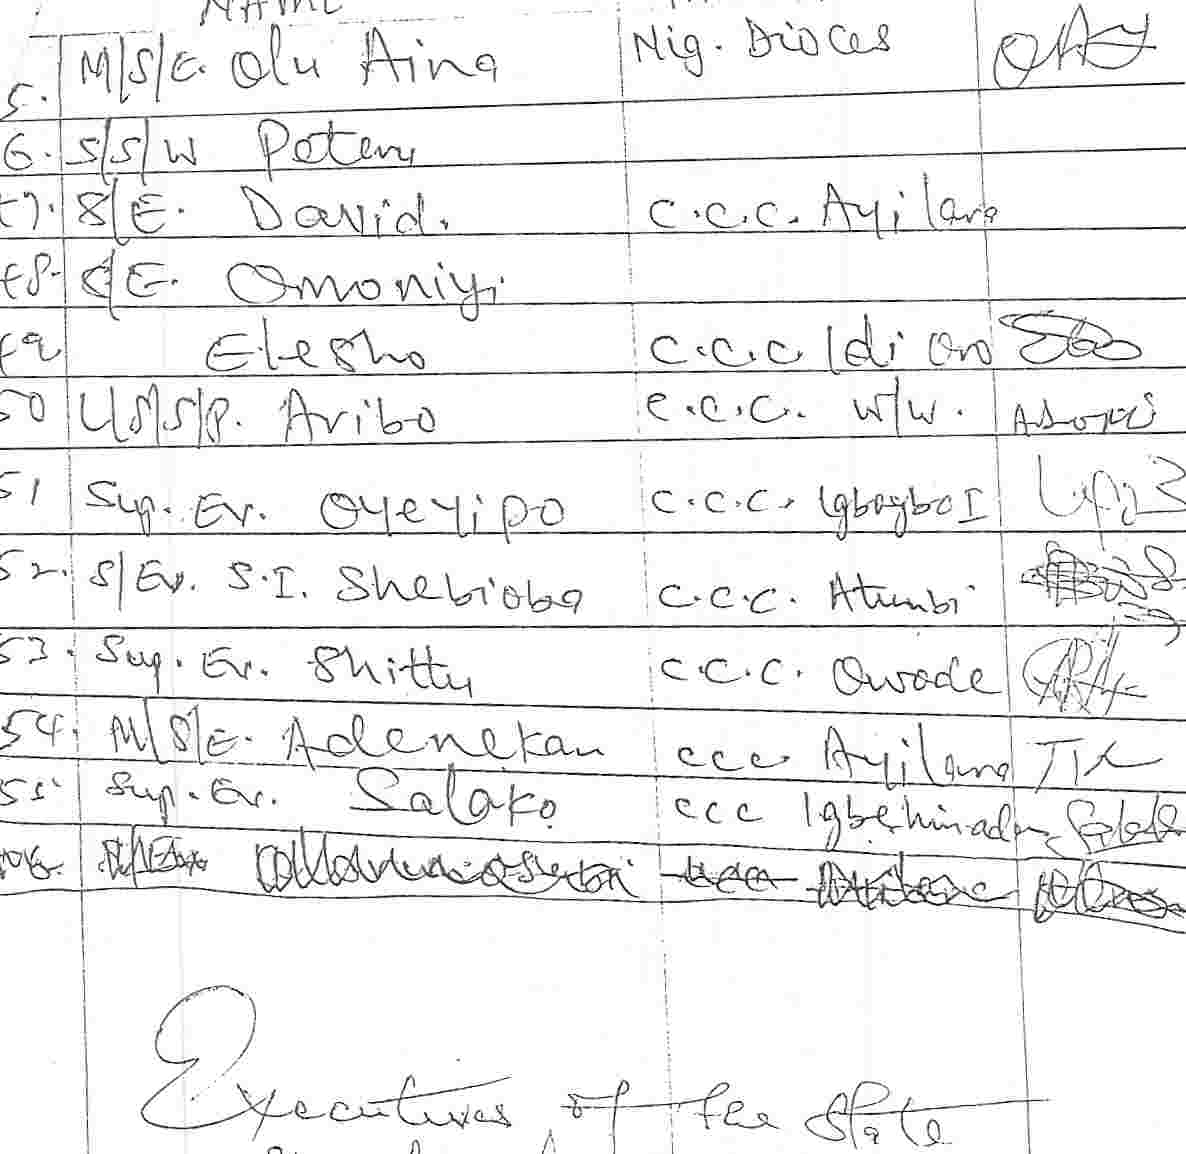 NAME
5. M/S/E. Olu Aina Nig. Dioces
6. S/S/W Peters
47. S/E. David. C.C.C. Ayilara
48. S/E. Omoniyi
49 Elesho C.C.C Idi Oro
50 U/S/S/P. Aribo C.C.C. W/W.
51 Sup. Ev. Oyeyipo C.C.C. Igbogbo I
52. S/Ev. S.I. Shebioba C.C.C. Atunbi
53. Sup. Ev. Shittu C.C.C. Owode
54. M/S/E. Adenekan CCC Ayilara
55 Sup. Ev. Salako CCC
Executives of the State